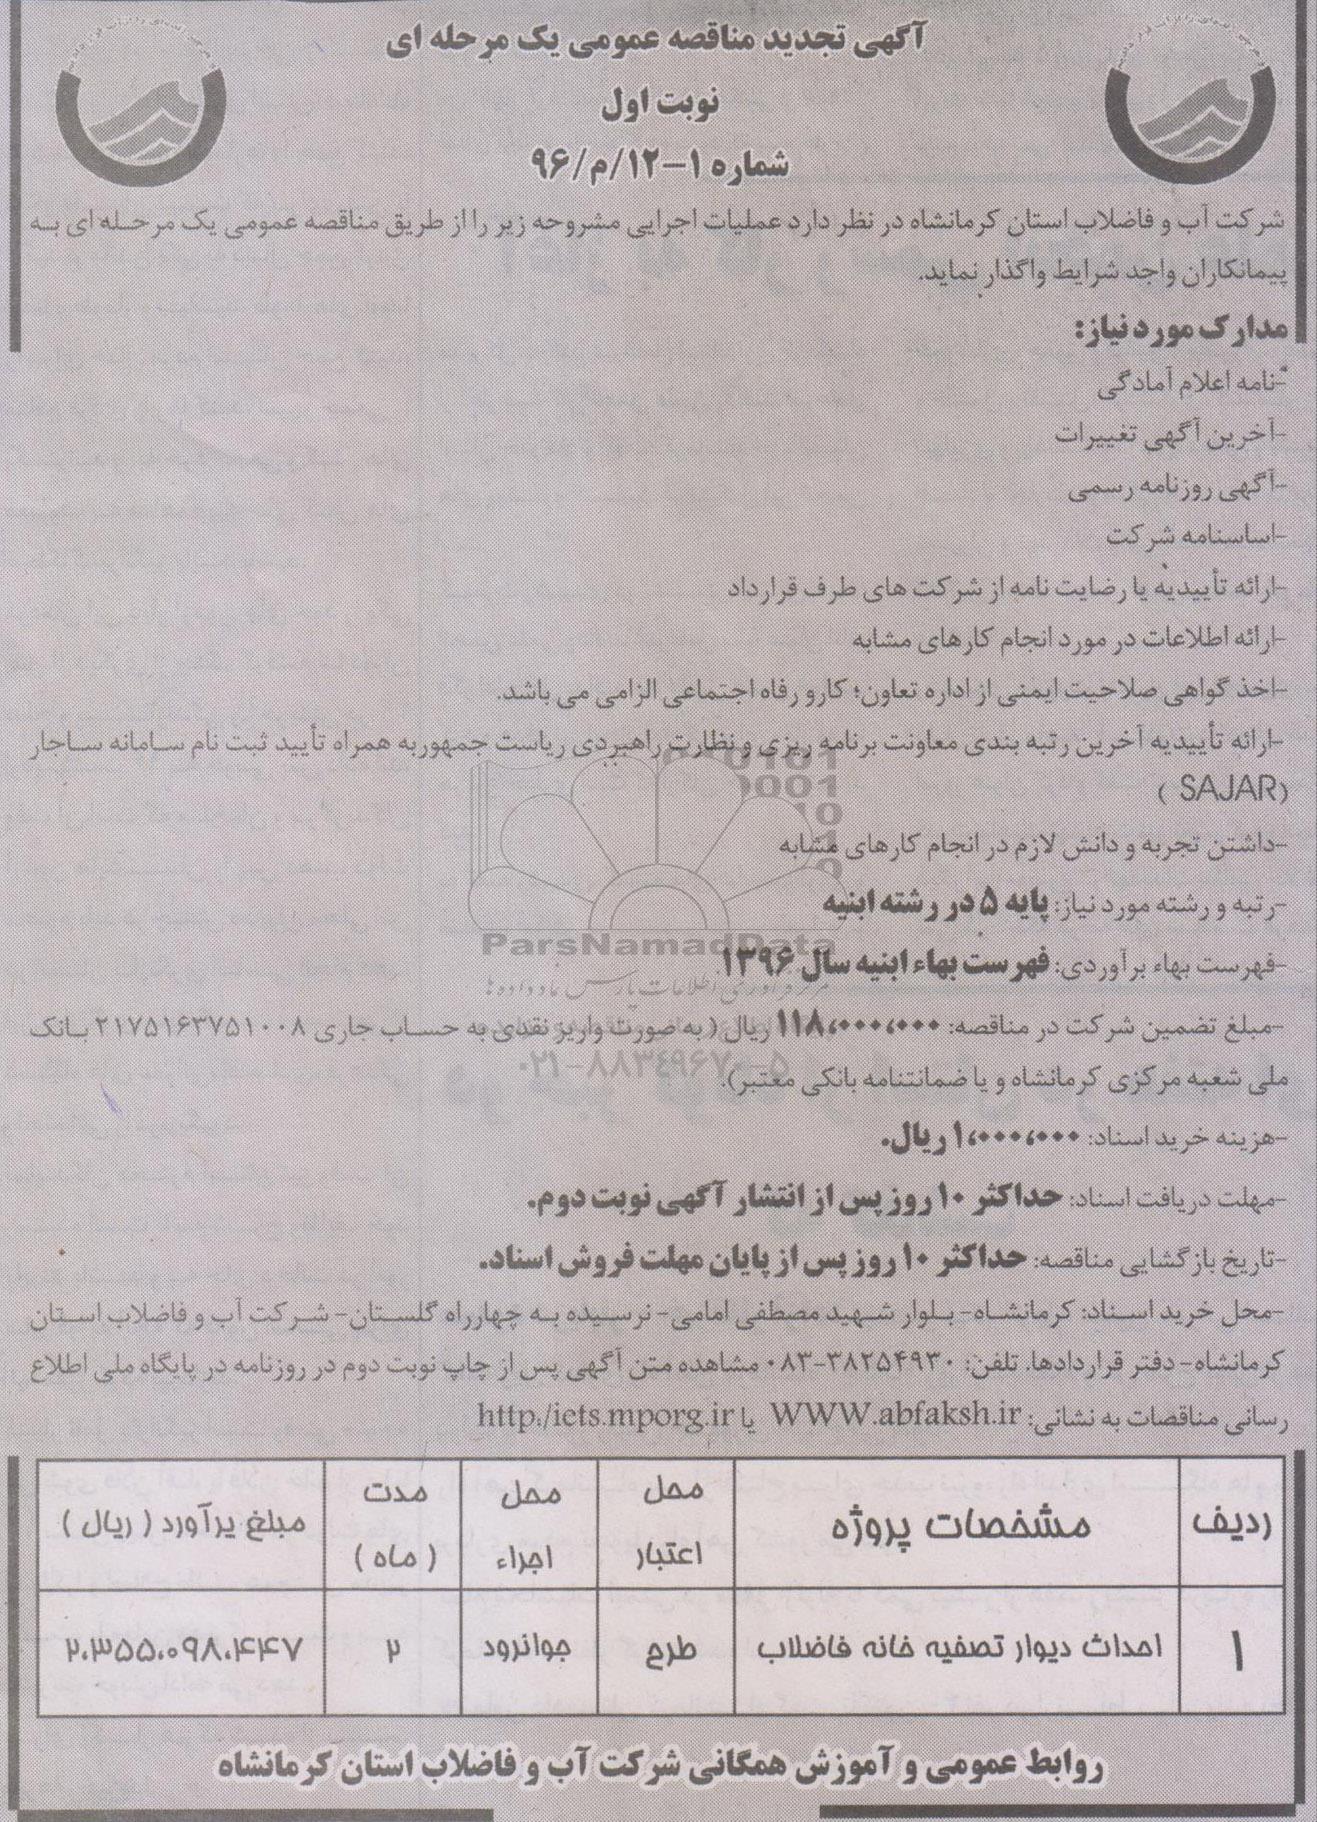 آگهی تجدید مناقصه عمومی یک مرحله ای
نوبت اول
شماره ۱-۱۲/م/۹۶
شرکت آب و فاضلاب استان کرمانشاه در نظر دارد عملیات اجرایی مشروحه زیر را از طریق مناقصه عمومی یک مرحله ای به
پیمانکاران واجد شرایط واگذار نماید.
مدارک مورد نیاز:
-نامه اعلام آمادگی
-آخرین آگهی تغییرات
-آگهی روزنامه رسمی
-اساسنامه شرکت
-ارائه تأییدیه یا رضایت نامه از شرکت های طرف قرارداد
-ارائه اطلاعات در مورد انجام کارهای مشابه
-اخذ گواهی صلاحیت ایمنی از اداره تعاون؛ کار و رفاه اجتماعی الزامی می باشد.
-ارائه تأییدیه آخرین رتبه بندی معاونت برنامه ریزی و نظارت راهبردی ریاست جمهوربه همراه تأیید ثبت نام سامانه ساجار
(SAJAR )
-داشتن تجربه و دانش لازم در انجام کارهای مشابه
-رتبه و رشته مورد نیاز: پایه ۵ در رشته ابنیه
ParsNamadData
-فهرست بهاء برآوردی: فهرست بهاء ابنیه سال ۱۳۹۶
مرکز فرآوری اطلاعات پارس نماد داده ها
-مبلغ تضمین شرکت در مناقصه: ۱۱۸،۰۰۰،۰۰۰ ریال ( به صورت واریز نقدی به حساب جاری ۲۱۷۵۱۶۳۷۵۱۰۰۸ بانک
۰۲۱-۸۸۳۴۹۶۷۰-۵
ملی شعبه مرکزی کرمانشاه و یا ضمانتنامه بانکی معتبر).
-هزینه خرید اسناد: ۱،۰۰۰،۰۰۰ ریال.
-مهلت دریافت اسناد: حداکثر ۱۰ روز پس از انتشار آگهی نوبت دوم.
-تاریخ بازگشایی مناقصه: حداکثر ۱۰ روز پس از پایان مهلت فروش اسناد.
-محل خرید اسناد: کرمانشاه- بلوار شهید مصطفی امامی- نرسیده به چهارراه گلستان- شرکت آب و فاضلاب استان
کرمانشاه- دفتر قراردادها. تلفن: ۳۸۲۵۴۹۳۰-۰۸۳ مشاهده متن آگهی پس از چاپ نوبت دوم در روزنامه در پایگاه ملی اطلاع
رسانی مناقصات به نشانی: WWW.abfaksh.ir یا http:/iets.mporg.ir
ردیف | مشخصات پروژه | محل اعتبار | محل اجراء | مدت ( ماه ) | مبلغ برآورد ( ریال )
۱ | احداث دیوار تصفیه خانه فاضلاب | طرح | جوانرود | ۲ | ۲،۳۵۵،۰۹۸،۴۴۷
روابط عمومی و آموزش همگانی شرکت آب و فاضلاب استان کرمانشاه